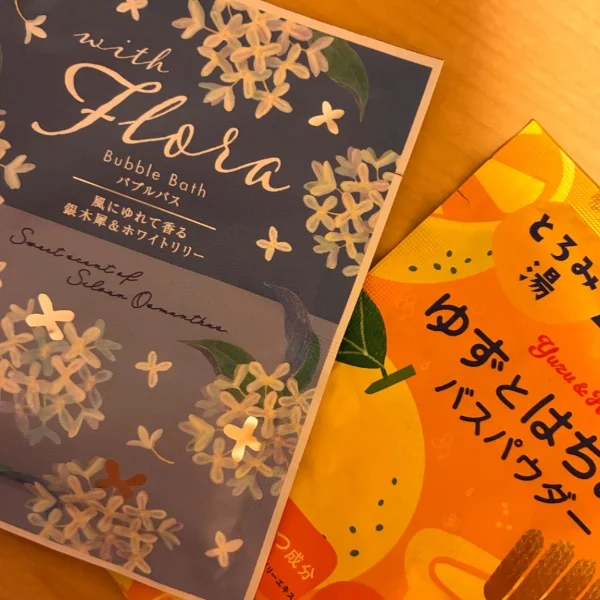 with
Flora
Bubble Bath
バブルバス
風にゆれて香る
銀木犀&ホワイトリリー
Sweet scent of
Silver Osmanthus
とろみ
湯
Yuzu & H
ゆずとはち
バスパウダー
つ成分
リーエキス